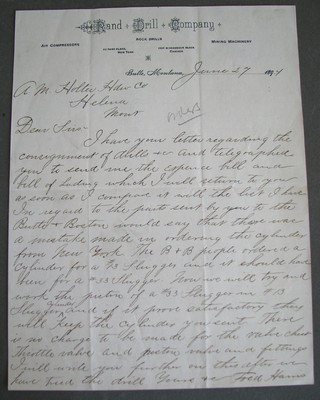 Rand Drill Company
ROCK DRILLS
AIR COMPRESSORS
MINING MACHINERY
23 PARK PLACE,
NEW YORK
Butte, Montana, June 27 1894
A M Holter Hdw Co
Helena
Mont
Dear Sirs
I have your letter regarding the
consignment of drills etc and telegraphed
you to send me the expense bill and
bill of lading which I will return to you
as soon as I compare it with the list I have
In regard to the parts sent by you to the
Butte & Boston would say that there was
a mistake made in ordering the cylinder
from New York. The B & B people ordered a
cylinder for a #3 Slugger and it should have
been for a #33 Slugger. Now we will try and
work the piston of a #33 Slugger in a #3
Slugger cylinder and if it prove satisfactory they
will keep the cylinder you sent. There
is no change to be made for the valve chest
Throttle valve and piston valve and fittings
I will write you further on this after we
have tried the drill Yours etc Fred